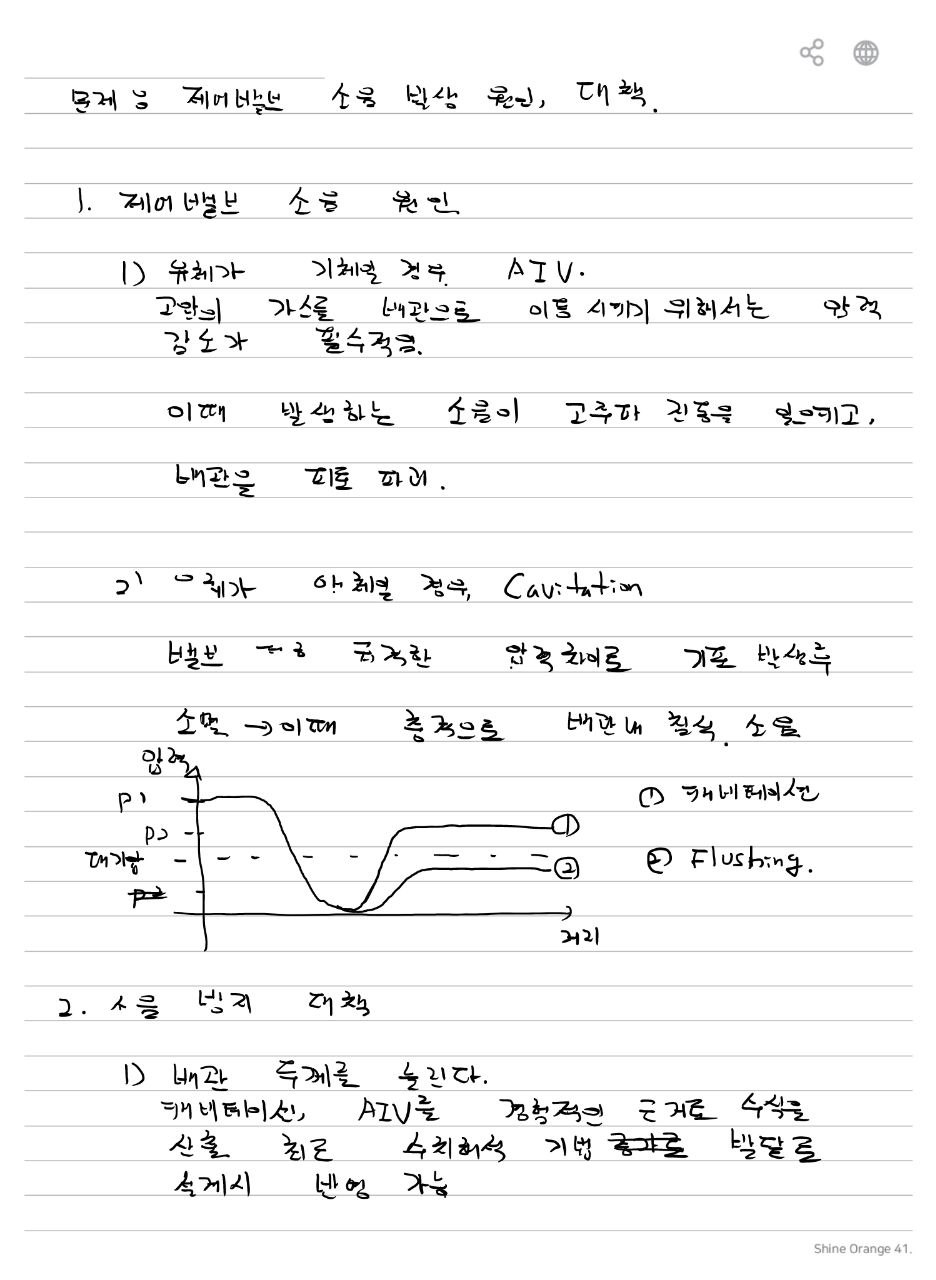 문제 5 제어밸브 소음 발생 원인, 대책.
1. 제어밸브 소음 원인
1) 유체가 기체일 경우 AIV.
고압의 가스를 배관으로 이동 시키기 위해서는 압력
감소가 필수적임.
이때 발생하는 소음이 고주파 진동을 일으키고,
배관을 피로 파괴.
2) 유체가 액체일 경우, Cavitation
밸브 급격한 압력차이로 기포 발생후
소멸 → 이때 충격으로 배관내 침식. 소음
압력
P1
P2
대기압
P2
① ②
거리
① 캐비테이션
② Flushing.
2. 소음 방지 대책
1) 배관 두께를 늘린다.
캐비테이션, AIV를 경험적인 근거로 수식을
산출 최근 수치해석 기법 발달로
설계시 반영 가능
Shine Orange 41.